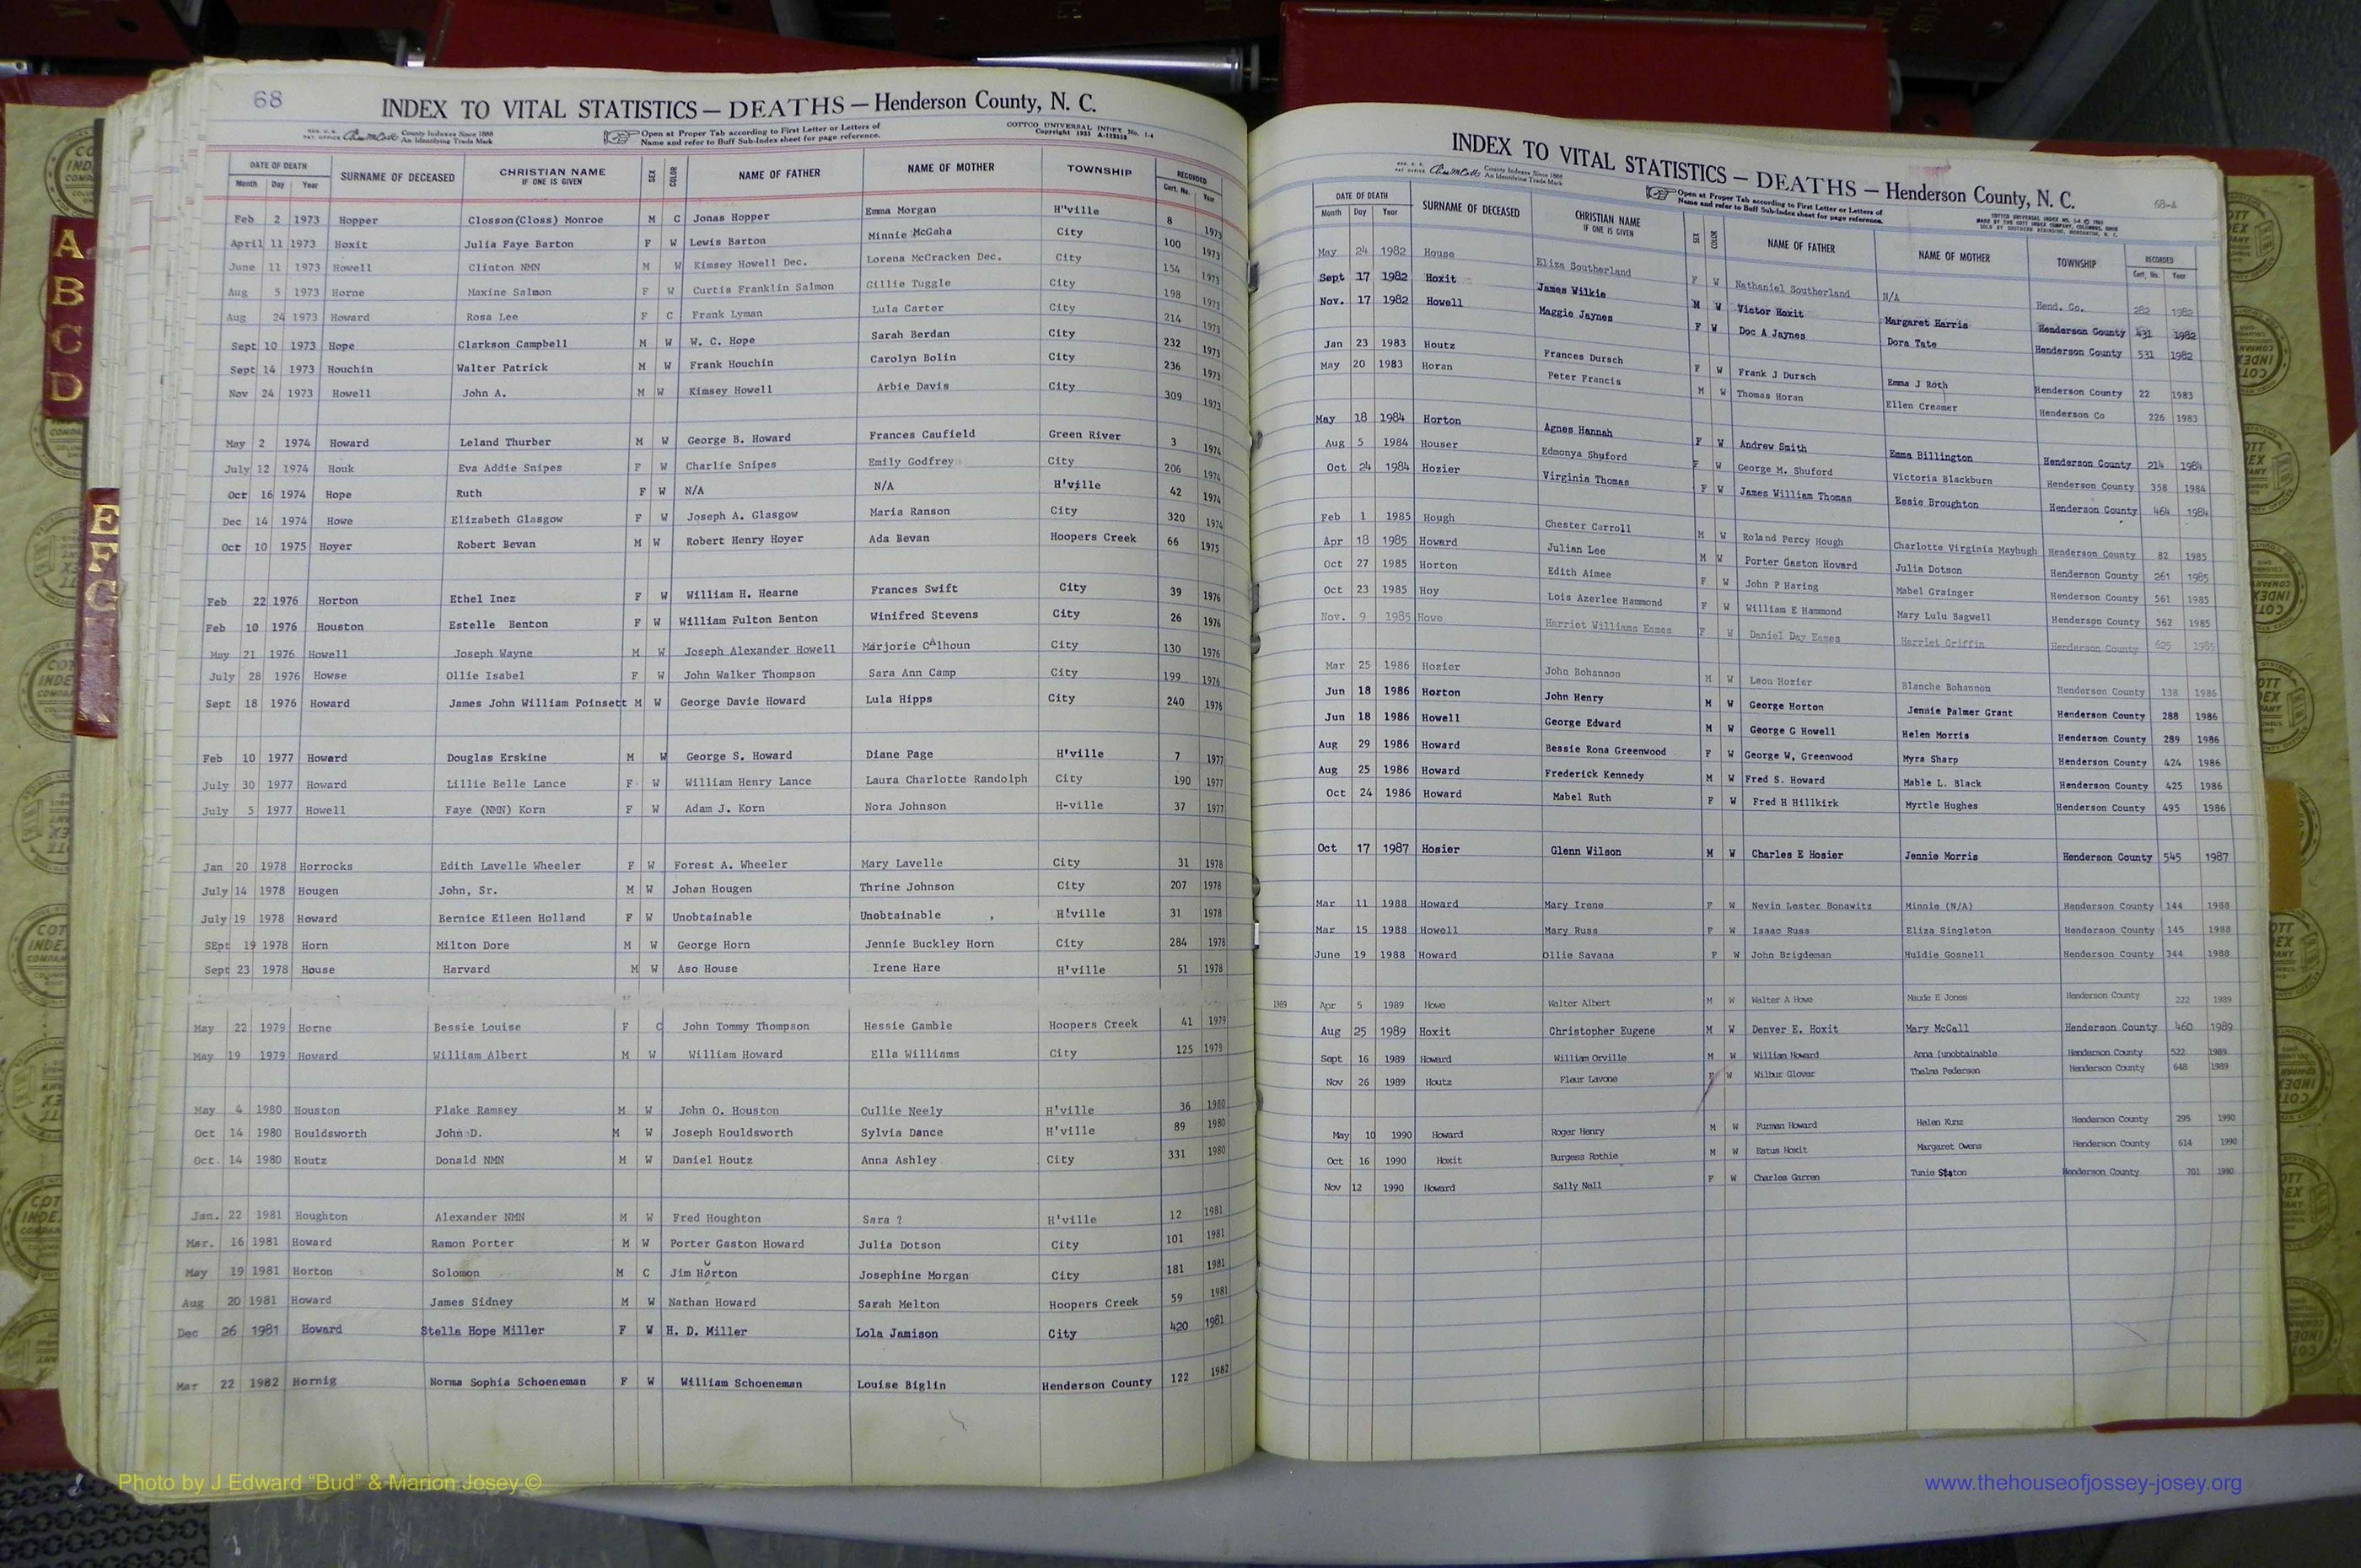 68
INDEX TO VITAL STATISTICS — DEATHS — Henderson County, N. C.
REG. U. S. PAT. OFFICE County Indexes Since 1888 An Identifying Trade Mark
Open at Proper Tab according to First Letter or Letters of Name and refer to Buff Sub-Index sheet for page reference.
COTTCO UNIVERSAL INDEX No. 1-4
DATE OF DEATH Month Day Year SURNAME OF DECEASED CHRISTIAN NAME IF ONE IS GIVEN SEX COLOR NAME OF FATHER NAME OF MOTHER TOWNSHIP RECORDED Cert. No. Year
Feb 2 1973 Hopper Closson(Closs) Monroe M C Jonas Hopper Emma Morgan H"ville 8 1973
April 11 1973 Hoxit Julia Faye Barton F W Lewis Barton Minnie McGaha City 100 1973
June 11 1973 Howell Clinton NMN M W Kimsey Howell Dec. Lorena McCracken Dec. City 154 1973
Aug 5 1973 Horne Maxine Salmon F W Curtis Franklin Salmon Gillie Tuggle City 198 1973
Aug 24 1973 Howard Rosa Lee F C Frank Lyman Lula Carter City 214 1973
Sept 10 1973 Hope Clarkson Campbell M W W. C. Hope Sarah Berdan City 232 1973
Sept 14 1973 Houchin Walter Patrick M W Frank Houchin Carolyn Bolin City 236 1973
Nov 24 1973 Howell John A. M W Kimsey Howell Arbie Davis City 309 1973
May 2 1974 Howard Leland Thurber M W George B. Howard Frances Caufield Green River 3 1974
July 12 1974 Houk Eva Addie Snipes F W Charlie Snipes Emily Godfrey City 206 1974
Oct 16 1974 Hope Ruth F W N/A N/A H'ville 42 1974
Dec 14 1974 Howe Elizabeth Glasgow F W Joseph A. Glasgow Maria Ranson City 320 1974
Oct 10 1975 Hoyer Robert Bevan M W Robert Henry Hoyer Ada Bevan Hoopers Creek 66 1975
Feb 22 1976 Horton Ethel Inez F W William H. Hearne Frances Swift City 39 1976
Feb 10 1976 Houston Estelle Benton F W William Fulton Benton Winifred Stevens City 26 1976
May 21 1976 Howell Joseph Wayne M W Joseph Alexander Howell Marjorie CAlhoun City 130 1976
July 28 1976 Howse Ollie Isabel F W John Walker Thompson Sara Ann Camp City 199 1976
Sept 18 1976 Howard James John William Poinsett M W George Davie Howard Lula Hipps City 240 1976
Feb 10 1977 Howard Douglas Erskine M W George S. Howard Diane Page H'ville 7 1977
July 30 1977 Howard Lillie Belle Lance F W William Henry Lance Laura Charlotte Randolph City 190 1977
July 5 1977 Howell Faye (NMN) Korn F W Adam J. Korn Nora Johnson H-ville 37 1977
Jan 20 1978 Horrocks Edith Lavelle Wheeler F W Forest A. Wheeler Mary Lavelle City 31 1978
July 14 1978 Hougen John, Sr. M W Johan Hougen Thrine Johnson City 207 1978
July 19 1978 Howard Bernice Eileen Holland F W Unobtainable Unobtainable H'ville 31 1978
SEpt 19 1978 Horn Milton Dore M W George Horn Jennie Buckley Horn City 284 1978
Sept 23 1978 House Harvard M W Aso House Irene Hare H'ville 51 1978
May 22 1979 Horne Bessie Louise F C John Tommy Thompson Hessie Gamble Hoopers Creek 41 1979
May 19 1979 Howard William Albert M W William Howard Ella Williams City 125 1979
May 4 1980 Houston Flake Ramsey M W John O. Houston Cullie Neely H'ville 36 1980
Oct 14 1980 Houldsworth John D. M W Joseph Houldsworth Sylvia Dance H'ville 89 1980
Oct. 14 1980 Houtz Donald NMN M W Daniel Houtz Anna Ashley City 331 1980
Jan. 22 1981 Houghton Alexander NMN M W Fred Houghton Sara ? H'ville 12 1981
Mar. 16 1981 Howard Ramon Porter M W Porter Gaston Howard Julia Dotson City 101 1981
May 19 1981 Horton Solomon M C Jim Horton Josephine Morgan City 181 1981
Aug 20 1981 Howard James Sidney M W Nathan Howard Sarah Melton Hoopers Creek 59 1981
Dec 26 1981 Howard Stella Hope Miller F W H. D. Miller Lola Jamison City 420 1981
Mar 22 1982 Hornig Norma Sophia Schoeneman F W William Schoeneman Louise Biglin Henderson County 122 1982
INDEX TO VITAL STATISTICS — DEATHS — Henderson County, N. C.
68-A
County Indexes Since 1888 An Identifying Trade Mark
Open at Proper Tab according to First Letter or Letters of Name and refer to Buff Sub-Index sheet for page reference.
DATE OF DEATH Month Day Year SURNAME OF DECEASED CHRISTIAN NAME IF ONE IS GIVEN SEX COLOR NAME OF FATHER NAME OF MOTHER TOWNSHIP RECORDED Cert. No. Year
May 24 1982 House Eliza Southerland F W Nathaniel Southerland N/A Hend. Co. 282 1982
Sept 17 1982 Hoxit James Wilkie M W Victor Hoxit Margaret Harris Henderson County 431 1982
Nov. 17 1982 Howell Maggie Jaynes F W Doc A Jaynes Dora Tate Henderson County 531 1982
Jan 23 1983 Houtz Frances Dursch F W Frank J Dursch Emma J Roth Henderson County 22 1983
May 20 1983 Horan Peter Francis M W Thomas Horan Ellen Creamer Henderson Co 226 1983
May 18 1984 Horton Agnes Hannah F W Andrew Smith Emma Billington Henderson County 214 1984
Aug 5 1984 Houser Edmonya Shuford F W George M. Shuford Victoria Blackburn Henderson County 358 1984
Oct 24 1984 Hozier Virginia Thomas F W James William Thomas Essie Broughton Henderson County 464 1984
Feb 1 1985 Hough Chester Carroll M W Roland Percy Hough Charlotte Virginia Mayhugh Henderson County 82 1985
Apr 18 1985 Howard Julian Lee M W Porter Gaston Howard Julia Dotson Henderson County 261 1985
Oct 27 1985 Horton Edith Aimee F W John P Haring Mabel Grainger Henderson County 561 1985
Oct 23 1985 Hoy Lois Azerlee Hammond F W William E Hammond Mary Lulu Bagwell Henderson County 562 1985
Nov. 9 1985 Howe Harriet Williams Eames F W Daniel Day Eames Harriet Griffin Henderson County 625 1985
Mar 25 1986 Hozier John Bohannon M W Leon Hozier Blanche Bohannon Henderson County 138 1986
Jun 18 1986 Horton John Henry M W George Horton Jennie Palmer Grant Henderson County 288 1986
Jun 18 1986 Howell George Edward M W George G Howell Helen Morris Henderson County 289 1986
Aug 29 1986 Howard Bessie Rona Greenwood F W George W, Greenwood Myra Sharp Henderson County 424 1986
Aug 25 1986 Howard Frederick Kennedy M W Fred S. Howard Mable L. Black Henderson County 425 1986
Oct 24 1986 Howard Mabel Ruth F W Fred H Hillkirk Myrtle Hughes Henderson County 495 1986
Oct 17 1987 Hosier Glenn Wilson M W Charles E Hosier Jennie Morris Henderson County 545 1987
Mar 11 1988 Howard Mary Irene F W Nevin Lester Bonawitz Minnie (N/A) Henderson County 144 1988
Mar 15 1988 Howell Mary Russ F W Isaac Russ Eliza Singleton Henderson County 145 1988
June 19 1988 Howard Ollie Savana F W John Brigdeman Huldie Gosnell Henderson County 344 1988
1989 Apr 5 1989 Howe Walter Albert M W Walter A Howe Maude E Jones Henderson County 222 1989
Aug 25 1989 Hoxit Christopher Eugene M W Denver E. Hoxit Mary McCall Henderson County 460 1989
Sept 16 1989 Howard William Orville M W William Howard Anna (unobtainable Henderson County 522 1989
Nov 26 1989 Houtz Fleur Lavone F W Wilbur Glover Thelma Pederson Henderson County 648 1989
May 10 1990 Howard Roger Henry M W Furman Howard Helen Kunz Henderson County 295 1990
Oct 16 1990 Hoxit Burgess Rothie M W Estus Hoxit Margaret Owens Henderson County 614 1990
Nov 12 1990 Howard Sally Nell F W Charles Garren Tunie Staton Henderson County 701 1990
A
B
C
D
E
F
G
Photo by J Edward “Bud” & Marion Josey ©
www.thehouseofjossey-josey.org